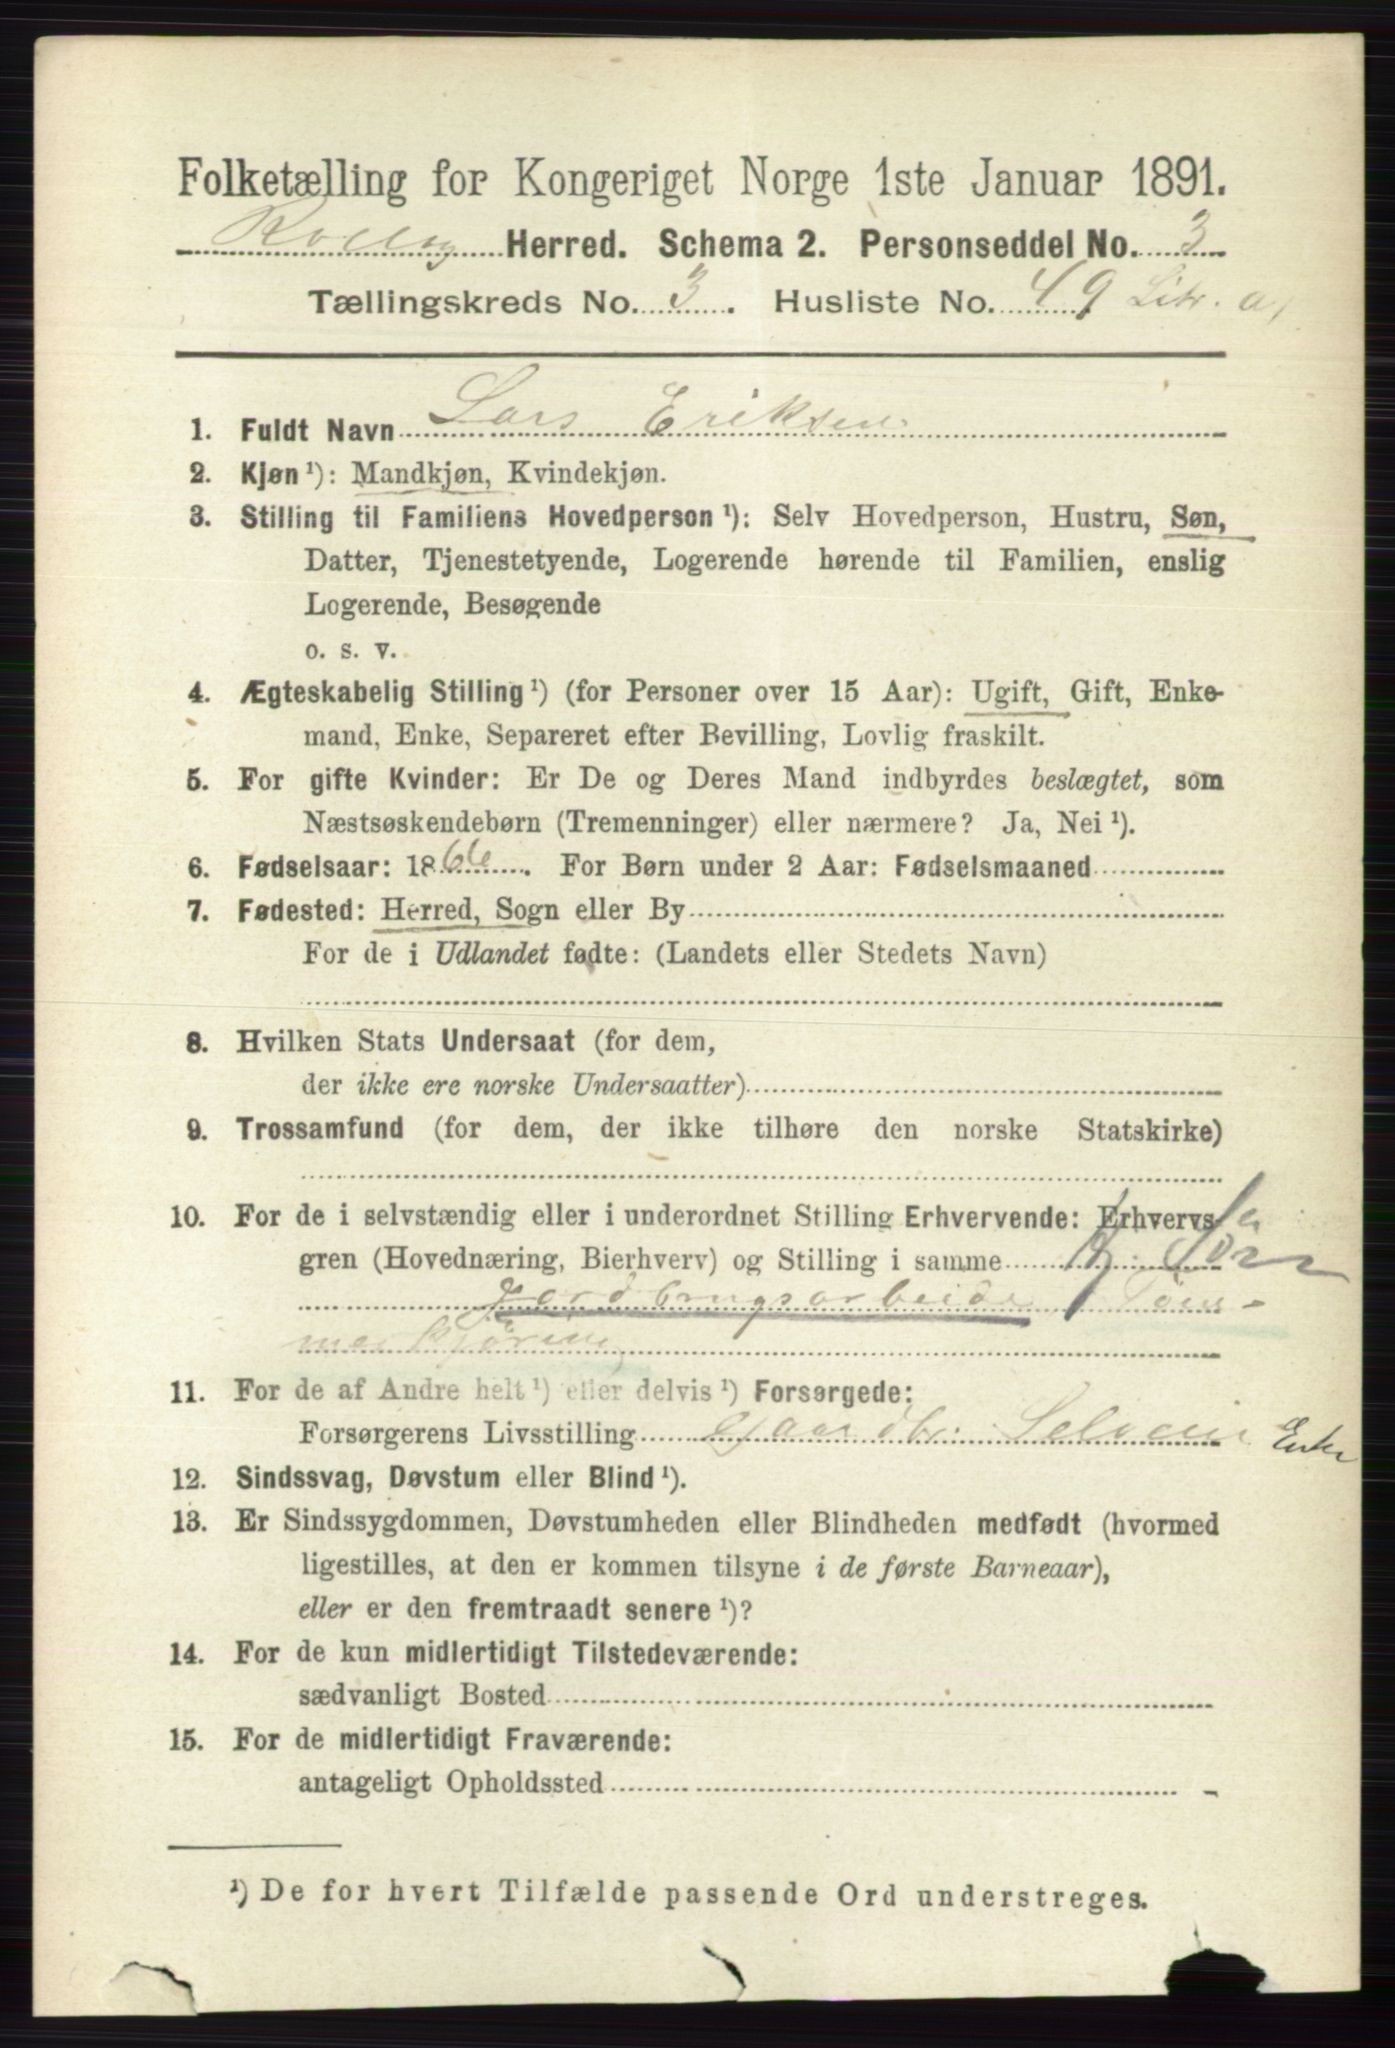 Folketælling for Kongeriget Norge 1ste Januar 1891.
Herred. Schema 2. Personseddel No. 3
Tællingskreds No. 3. Husliste No. 49 Litr. a)
1. Fuldt Navn Lars Eriksen
2. Kjøn ¹): Mandkjøn, Kvindekjøn.
3. Stilling til Familiens Hovedperson ¹): Selv Hovedperson, Hustru, Søn,
Datter, Tjenestetyende, Logerende hørende til Familien, enslig
Logerende, Besøgende
o. s. v.
4. Ægteskabelig Stilling ¹) (for Personer over 15 Aar): Ugift, Gift, Enke-
mand, Enke, Separeret efter Bevilling, Lovlig fraskilt.
5. For gifte Kvinder: Er De og Deres Mand indbyrdes beslægtet, som
Næstsøskendebørn (Tremenninger) eller nærmere? Ja, Nei ¹).
6. Fødselsaar: 1866. For Børn under 2 Aar: Fødselsmaaned
7. Fødested: Herred, Sogn eller By
For de i Udlandet fødte: (Landets eller Stedets Navn)
8. Hvilken Stats Undersaat (for dem,
der ikke ere norske Undersaatter)
9. Trossamfund (for dem, der ikke tilhøre den norske Statskirke)
10. For de i selvstændig eller i underordnet Stilling Erhvervende: Erhvervs-
gren (Hovednæring, Bierhverv) og Stilling i samme
Jordbrugsarbeide Tøm-
merkjøring
11. For de af Andre helt ¹) eller delvis ¹) Forsørgede:
Forsørgerens Livsstilling Gaardbr. Selveier Enke
12. Sindssvag, Døvstum eller Blind ¹).
13. Er Sindssygdommen, Døvstumheden eller Blindheden medfødt (hvormed
ligestilles, at den er kommen tilsyne i de første Barneaar),
eller er den fremtraadt senere ¹)?
14. For de kun midlertidigt Tilstedeværende:
sædvanligt Bosted
15. For de midlertidigt Fraværende:
antageligt Opholdssted
¹) De for hvert Tilfælde passende Ord understreges.